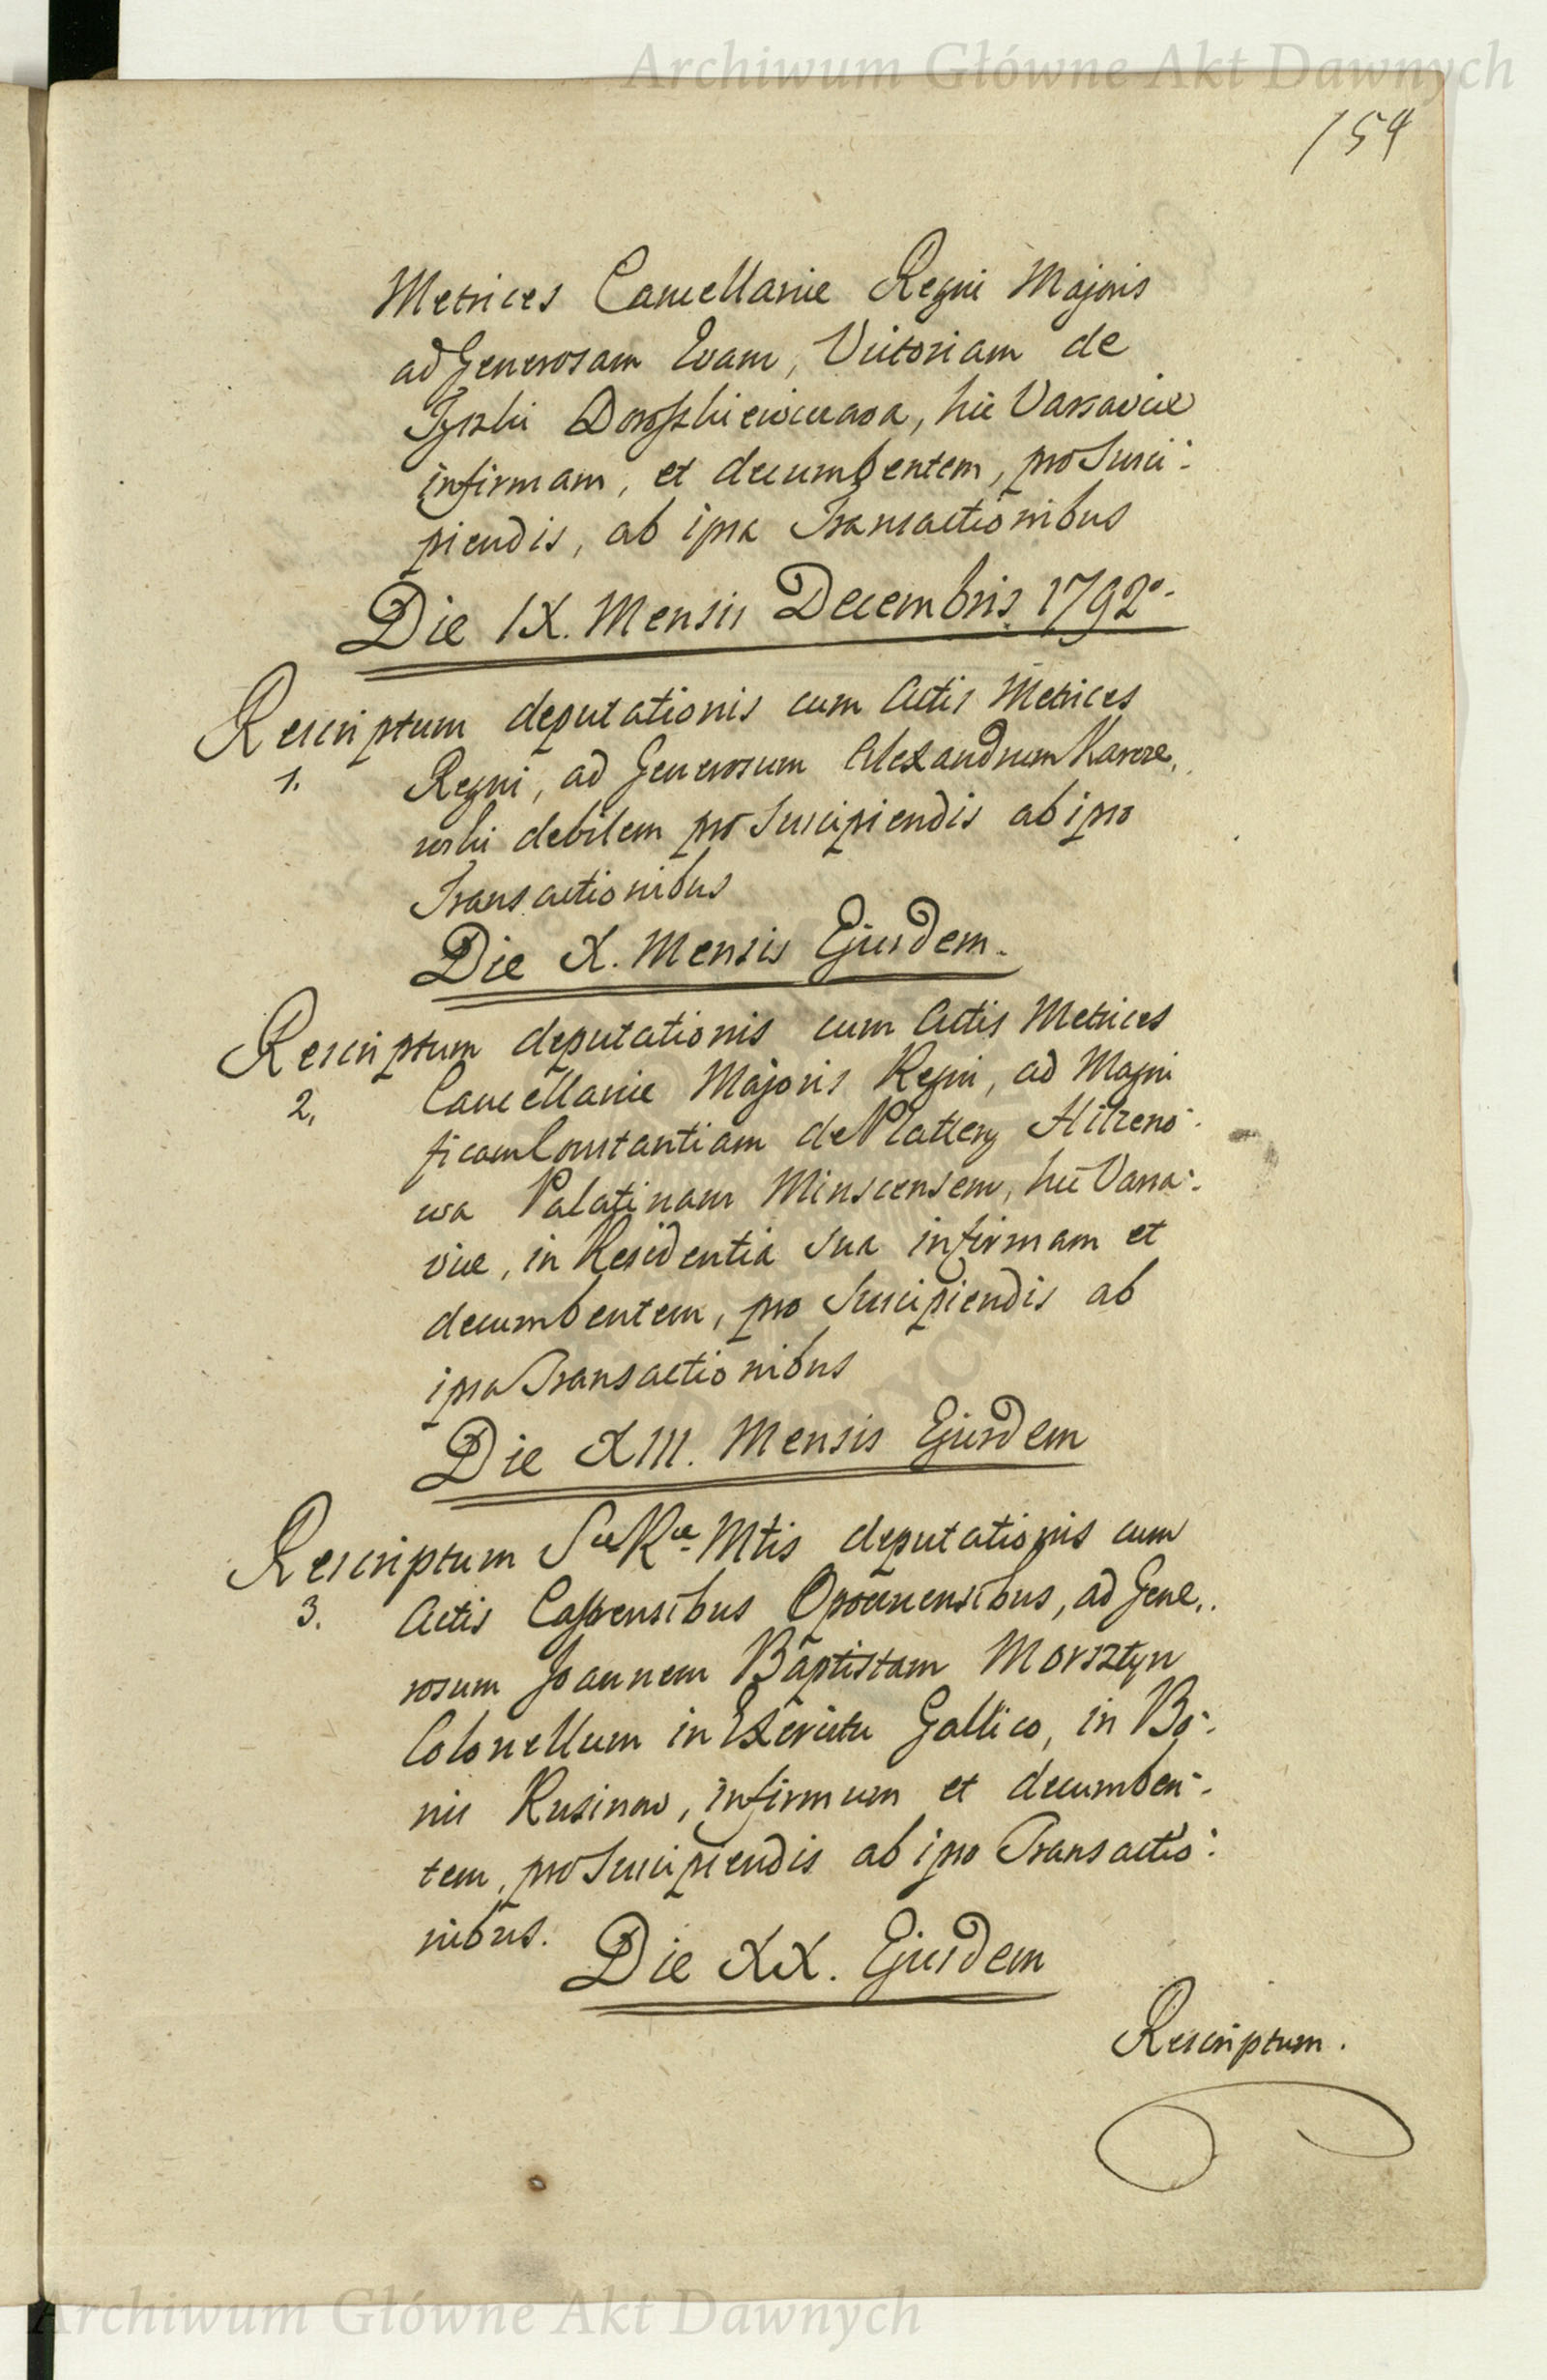 Archiwum Główne Akt Dawnych
154
Metrices Cancellariæ Regni Majoris
ad Generosam Evam, Victoriam de
hic Varsaviæ
infirmam, et decumbentem, pro Susci-
piendis, ab ipsa Transactionibus
Die IX. Mensis Decembris 1792o.
Rescriptum deputationis cum Actis Metrices
1. Regni, ad Generosum Alexandrum
debilem pro Suscipiendis ab ipso
Transactionibus
Die X. Mensis Ejusdem.
Rescriptum deputationis cum Actis Metrices
2. Cancellariæ Majoris Regni, ad Magni
ficam Constantiam de Platterg Hilzeno-
wa Palatinam Minscensem, hic Varsa-
viæ, in Residentia Sua infirmam et
decumbentem, pro Suscipiendis ab
ipsa Transactionibus
Die XIII. Mensis Ejusdem
Rescriptum Sæ Ræ Mtis deputationis cum
3. Actis Castrensibus Opocznensibus, ad Gene-
rosum Joannem Baptistam Morsztyn
Colonellum in Exercitu Gallico, in Bo-
nis Rusinow, infirmum et decumben-
tem, pro Suscipiendis ab ipso Transactio-
nibus.
Die XX. Ejusdem
Rescriptum.
Archiwum Główne Akt Dawnych